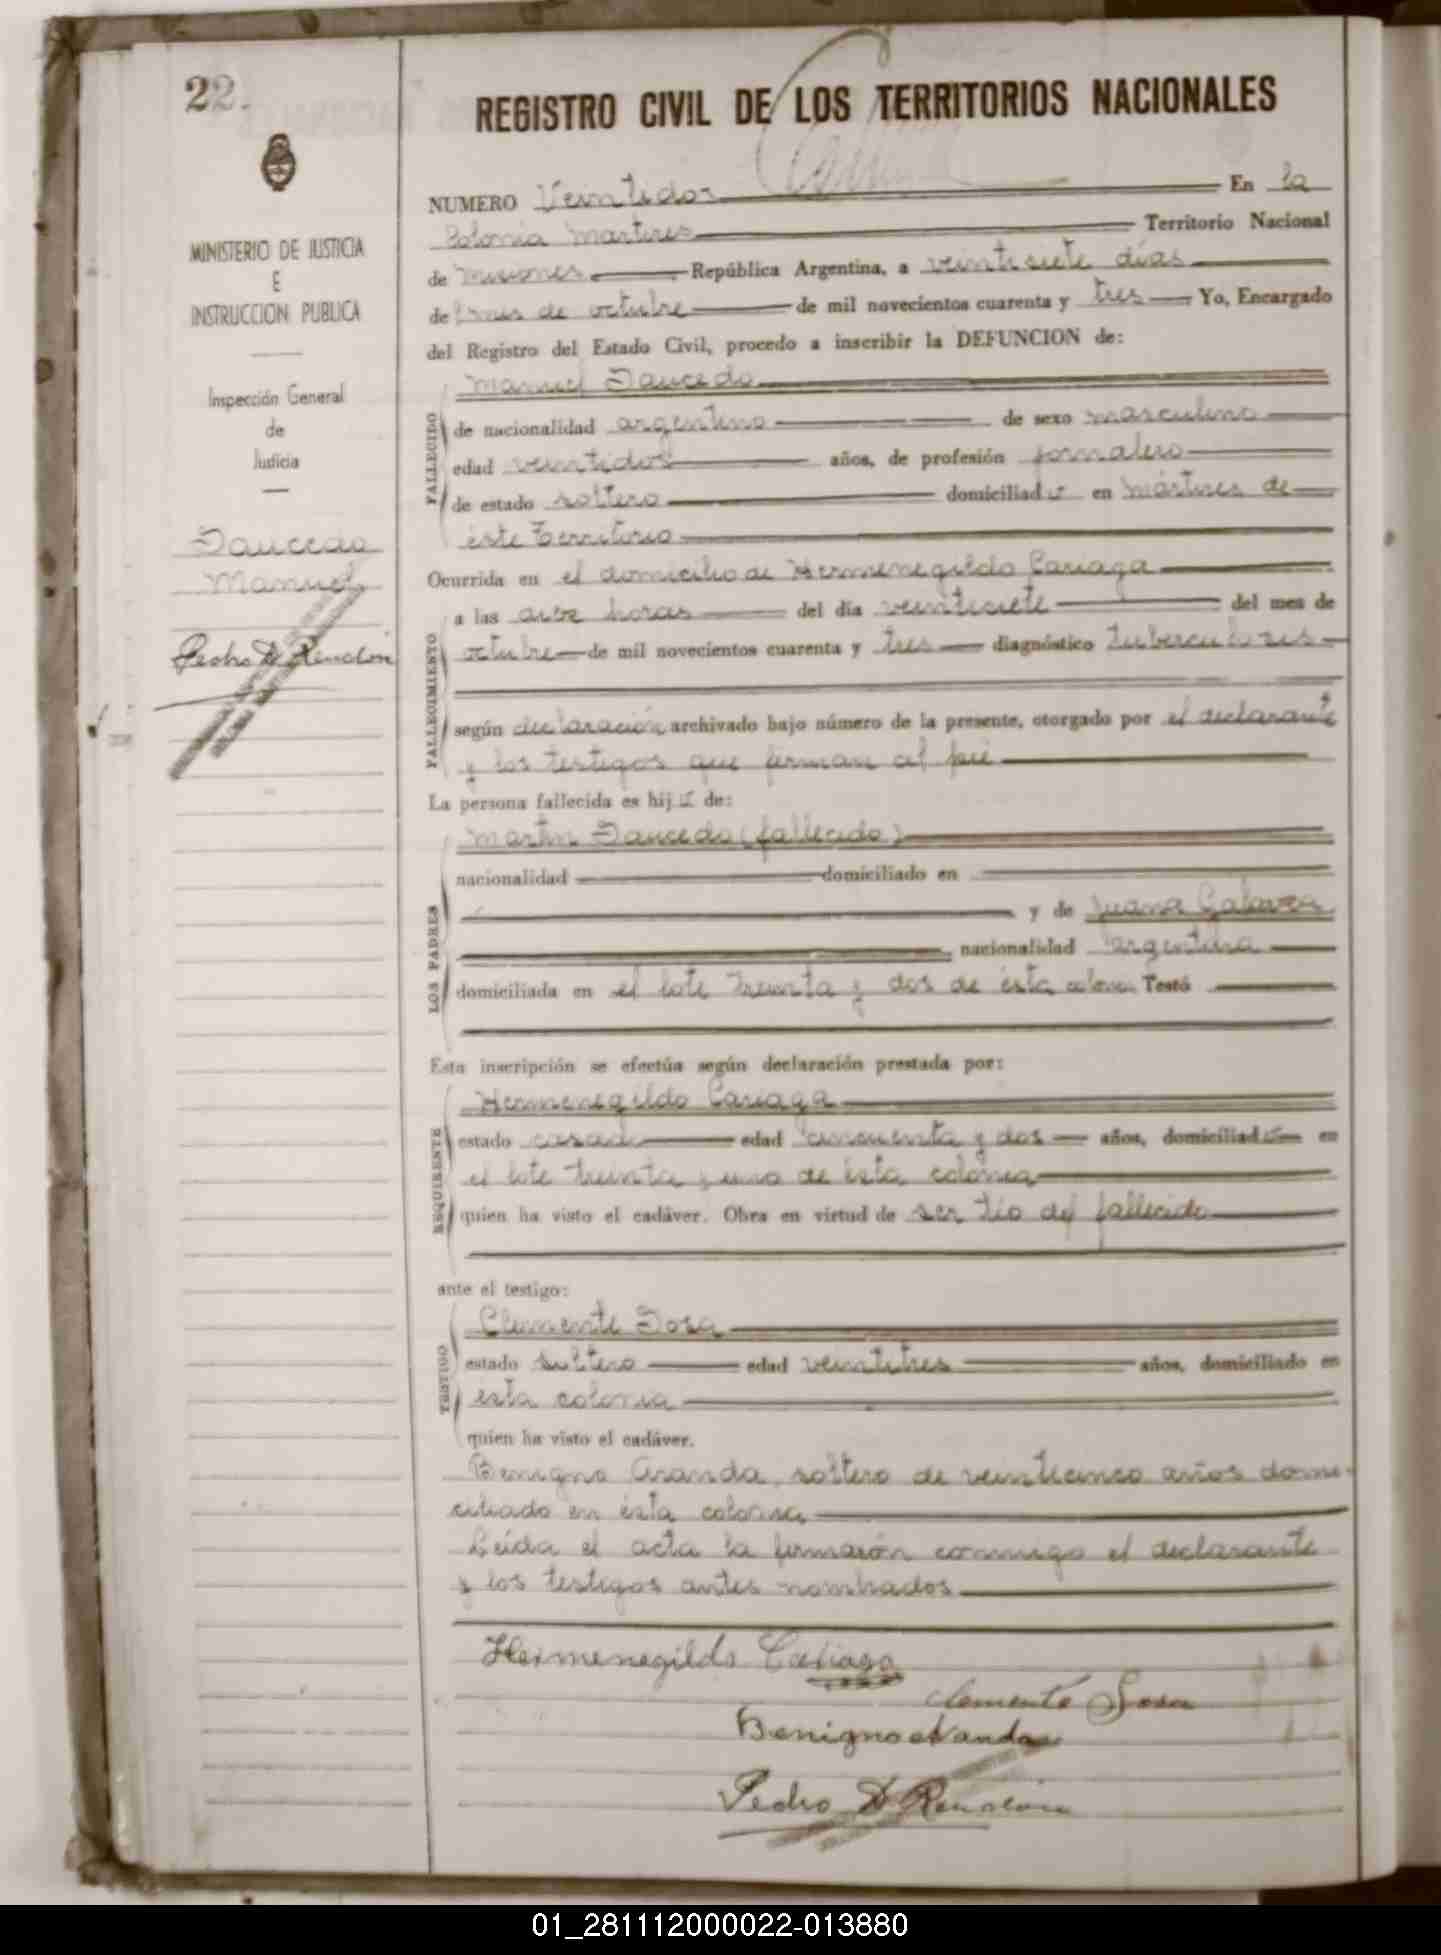 22.
REGISTRO CIVIL DE LOS TERRITORIOS NACIONALES
MINISTERIO DE JUSTICIA
E
INSTRUCCION PUBLICA
Inspección General
de
Justicia
Saucedo
Manuel
Pedro D Rendón
NUMERO Veintidos En la
Colonia Martires Territorio Nacional
de Misiones República Argentina, a veintisiete días
del mes de octubre de mil novecientos cuarenta y tres Yo, Encargado
del Registro del Estado Civil, procedo a inscribir la DEFUNCION de:
FALLECIDO
Manuel Saucedo
de nacionalidad argentino de sexo masculino
edad veintidos años, de profesión jornalero
de estado soltero domiciliado en Mártires de
éste Territorio
Ocurrida en el domicilio de Hermenegildo Cariaga
FALLECIMIENTO
a las horas del día veintisiete del mes de
octubre de mil novecientos cuarenta y tres diagnóstico tuberculosis
según declaración archivado bajo número de la presente, otorgado por el declarante
y los testigos que firman al pié
La persona fallecida es hijo de:
LOS PADRES
Martin Saucedo (fallecido)
nacionalidad domiciliado en
y de Juana
nacionalidad argentina
domiciliada en el lote treinta y dos de ésta colonia Testó
Esta inscripción se efectúa según declaración prestada por:
REQUIRENTE
Hermenegildo Cariaga
estado casado edad cincuenta y dos años, domiciliado en
el lote treinta y uno de ésta colonia
quien ha visto el cadáver. Obra en virtud de ser tío del fallecido
ante el testigo:
TESTIGO
Clemente Sosa
estado soltero edad veintitres años, domiciliado en
esta colonia
quien ha visto el cadáver.
Benigno Aranda, soltero de veinticinco años domi-
ciliado en ésta colonia
Leída el acta la firmarón conmigo el declarante
y los testigos antes nombrados
Hermenegildo Cariaga
Clemente Sosa
Benigno Aranda
Pedro D Rendón
01_281112000022-013880